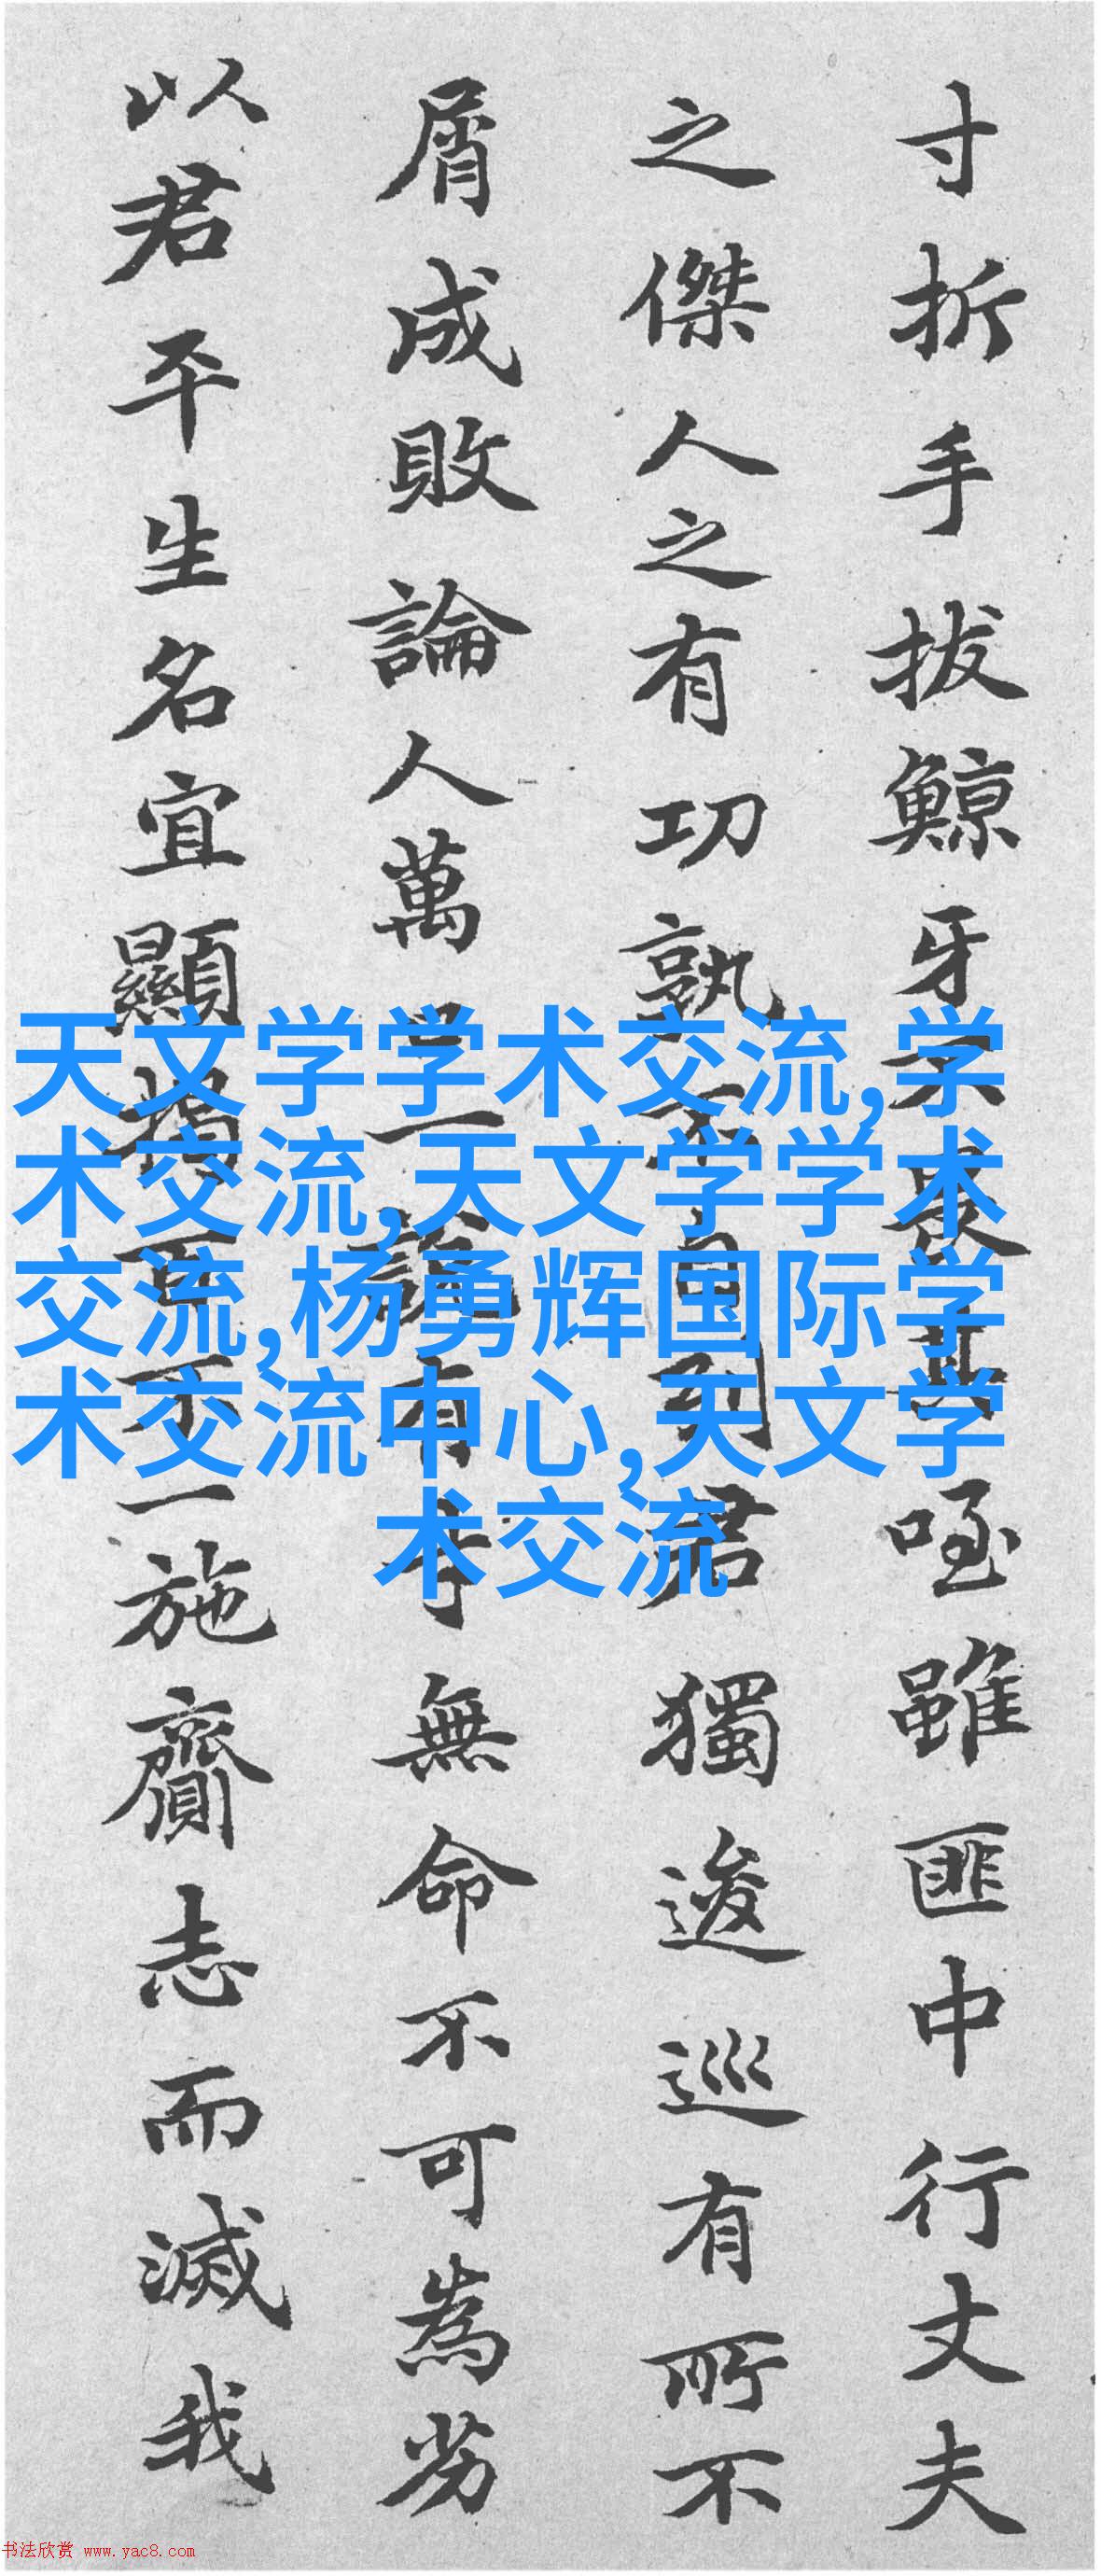 寸折手拔鯨牙不畏其咥雖匪中行丈夫
之傑人之有功孰不自列君獨逡巡有所不
屑成敗論人萬口一談有才無命不可為勞
以君平生名宜顯揭百不一施齎志而滅我
天文学学术交流,学
术交流,天文学学术
交流,杨勇辉国际学
术交流中心,天文学
术交流
书法欣赏 www.yac8.com